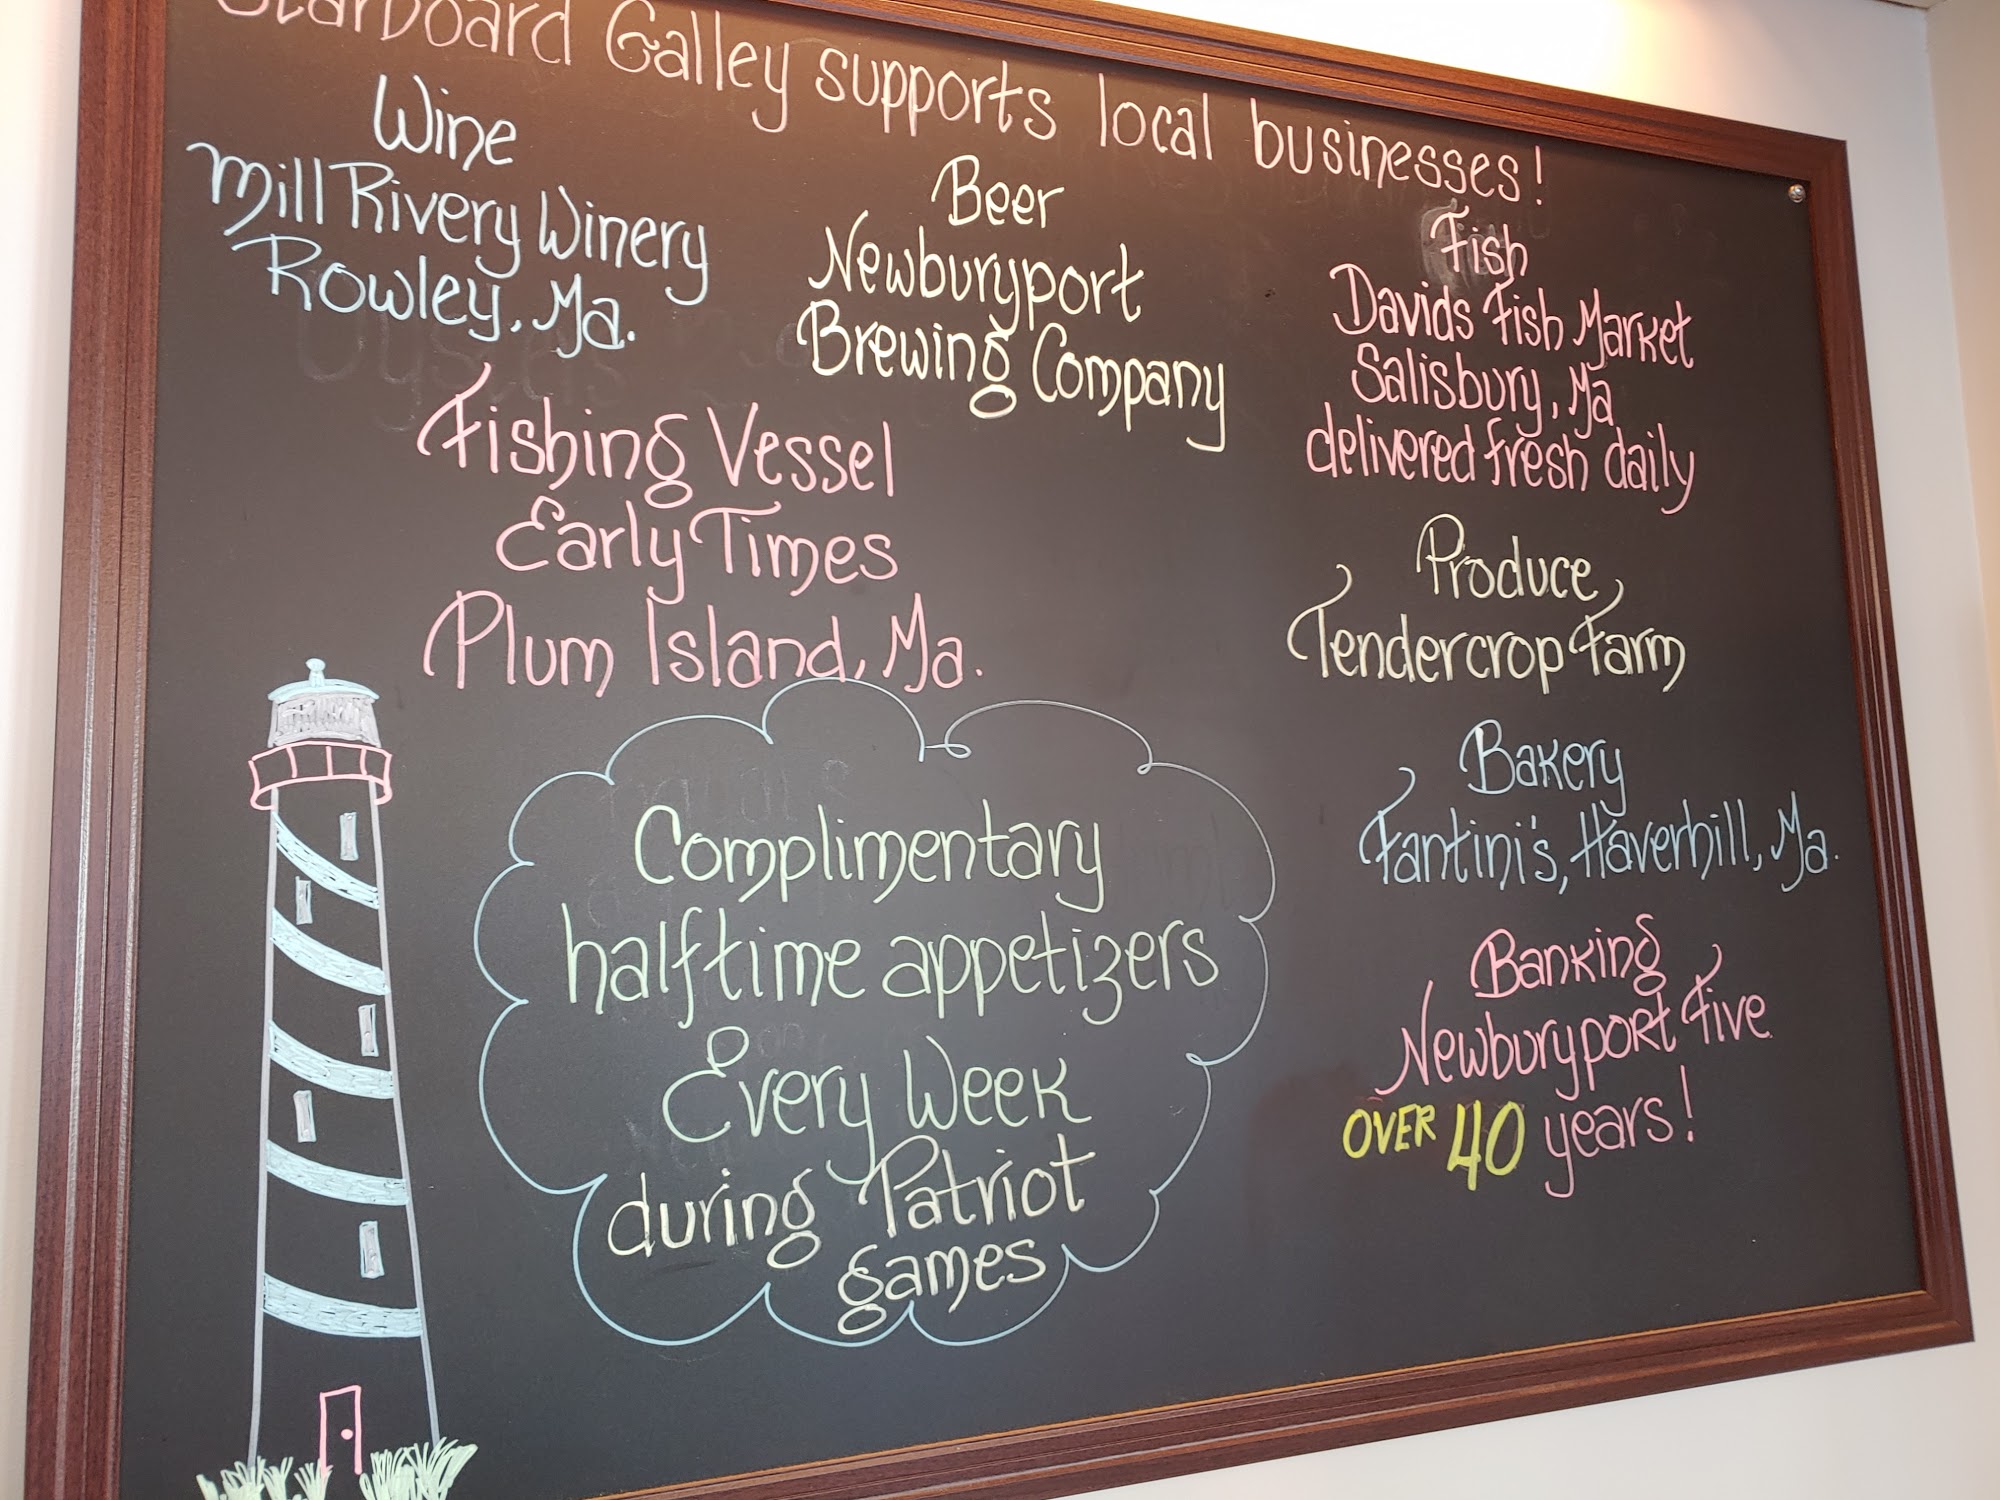 Starboard Galley supports local businesses!
Wine
Mill Rivery Winery
Rowley, Ma.
Beer
Newburyport
Brewing Company
Fish
Davids Fish Market
Salisbury, Ma
delivered fresh daily
Fishing Vessel
Early Times
Plum Island, Ma.
Produce
Tendercrop Farm
Bakery
Fantini's, Haverhill, Ma.
Banking
Newburyport Five
OVER 40 years!
Complimentary
halftime appetizers
Every Week
during Patriot
games